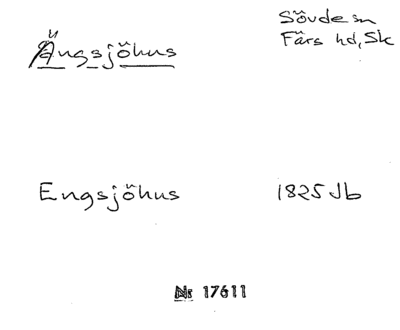 Ängsjöhus
Sövde sn
Färs hd, Sk
Engsjöhus
1825 Jb
Nr 17611